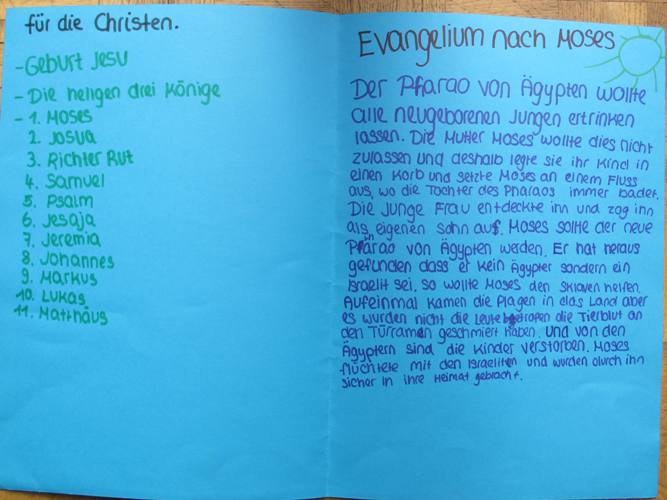 für die Christen.
- Geburt Jesu
- Die heiligen drei Könige
- 1. Moses
2. Josua
3. Richter Rut
4. Samuel
5. Psalm
6. Jesaja
7. Jeremia
8. Johannes
9. Markus
10. Lukas
11. Matthäus
Evangelium nach Moses
Der Pharao von Ägypten wollte
alle neugeborenen Jungen ertrinken
lassen. Die Mutter Moses wollte dies nicht
zulassen und deshalb legte sie ihr Kind in
einen Korb und setzte Moses an einem Fluss
aus, wo die Tochter des Pharaos immer badet.
Die junge Frau entdeckte inn und zog inn
als eigenen Sohn auf. Moses sollte der neue
Pharao von Ägypten werden. Er hat heraus
gefunden dass er kein Ägypter sondern ein
Israelit sei. so wollte Moses den Sklaven helfen.
Aufeinmal kamen die Plagen in das Land aber
es wurden nicht die Leute betropen die Tierblut an
den Türramen geschmiert haben. Und von den
Ägyptern sind die Kinder verstorben. Moses
flüchtete mit den Israeliten und wurden durch ihn
sicher in ihre Heimat gebracht.